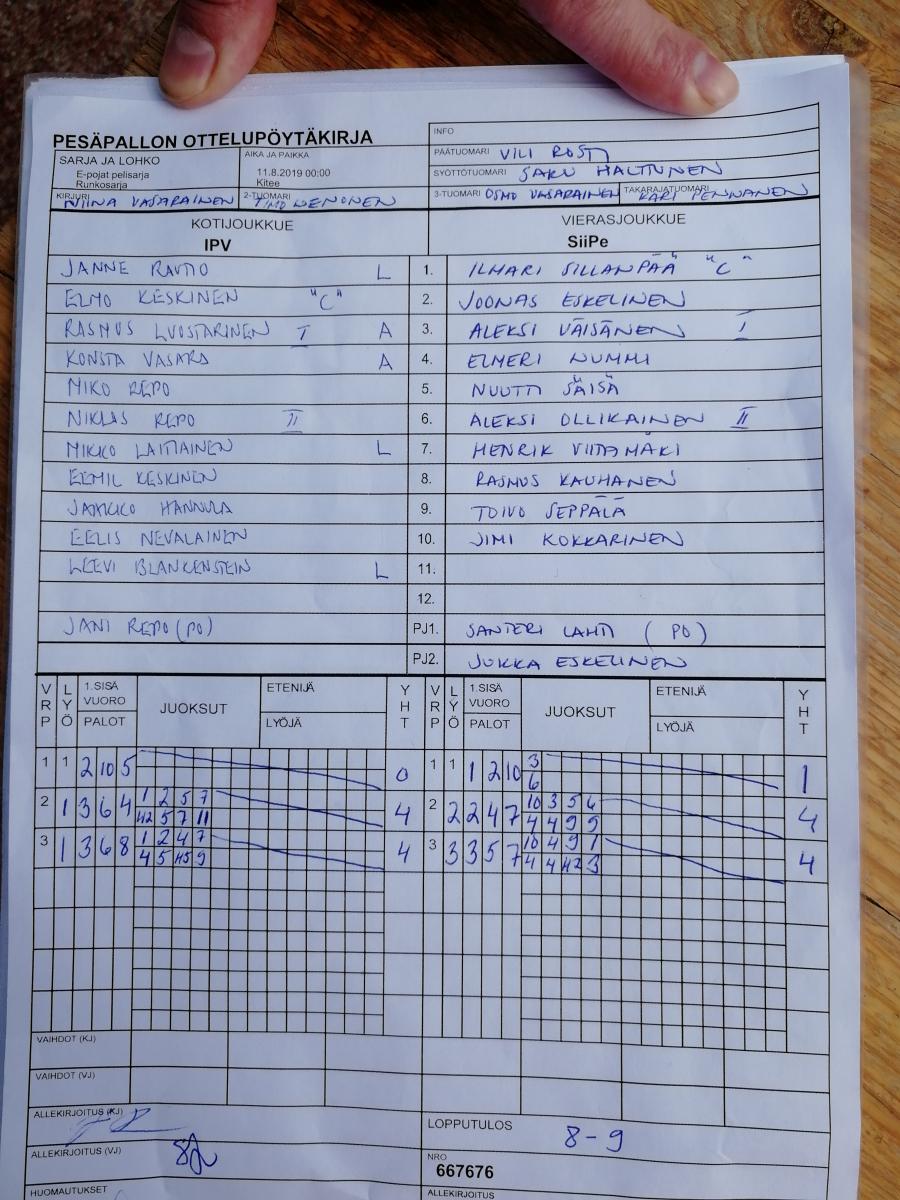 PESÄPALLON OTTELUPÖYTÄKIRJA
INFO
SARJA JA LOHKO
E-pojat pelisarja
Runkosarja
AIKA JA PAIKKA
11.8.2019 00:00
Kitee
PÄÄTUOMARI VILI ROSTI
SYÖTTÖTUOMARI SAKU HALTUNEN
KIRJURI NIINA VASARAINEN
2-TUOMARI TIMO
3-TUOMARI OSMO VASARAINEN
TAKARAJATUOMARI KARI PENNANEN
KOTIJOUKKUE
IPV
VIERASJOUKKUE
SiiPe
JANNE RAUTIO L 1. ILHARI SILLANPÄÄ "C"
ELMO KESKINEN "C" 2. JOONAS ESKELINEN
RASMUS LUOSTARINEN I A 3. ALEKSI VÄISÄNEN I
KONSTA VASARA A 4. ELMERI NUMMI
MIKO REPO 5. NUUTTI SÄISÄ
NIKLAS REPO II 6. ALEKSI OLLIKAINEN II
MIKKO LAITIAINEN L 7. HENRIK VIITAMÄKI
EEMIL KESKINEN 8. RASMUS KAUHANEN
JAAKKO HANNULA 9. TOIVO SEPPÄLÄ
EELIS NEVALAINEN 10. JIMI KOKKARINEN
LEEVI BLANKENSTEIN L 11.
12.
JANI REPO (PO) PJ1. SANTERI LAHTI (PO)
PJ2. JUKKA ESKELINEN
VRP LYÖ 1.SISÄ VUORO PALOT JUOKSUT ETENIJÄ LYÖJÄ YHT VRP LYÖ 1.SISÄ VUORO PALOT JUOKSUT ETENIJÄ LYÖJÄ YHT
1 1 2 10 5 0 1 1 1 2 10 3 1
6
2 1 3 6 4 1 2 5 7 4 2 2 2 4 7 10 3 5 6 4
42 5 7 11 4 4 9 9
3 1 3 6 8 1 2 4 7 4 3 3 3 5 7 10 4 9 1 4
4 5 45 9 4 4 42 3
VAIHDOT (KJ)
VAIHDOT (VJ)
ALLEKIRJOITUS (KJ)
LOPPUTULOS 8-9
ALLEKIRJOITUS (VJ)
NRO
667676
HUOMAUTUKSET
ALLEKIRJOITUS